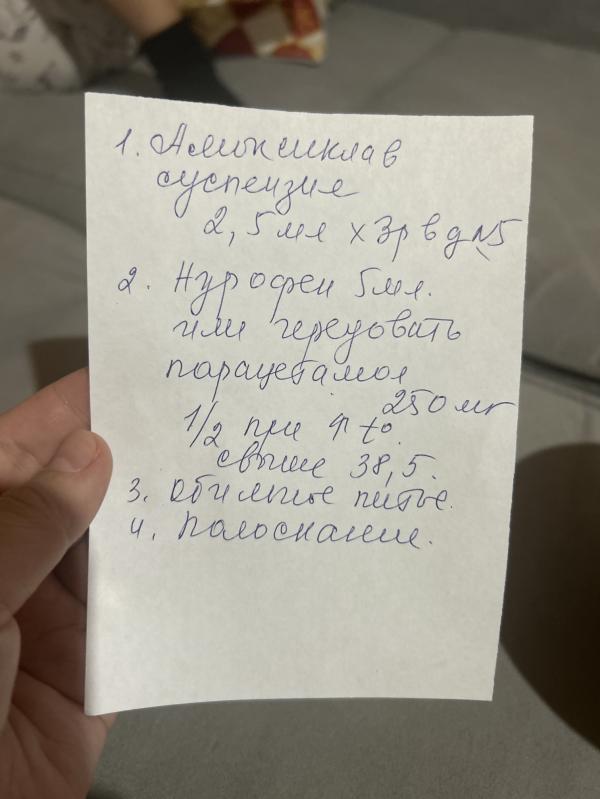 1. Амоксиклав
суспензие
2,5мл х 3р в д N5
2. Нурофен 5мл.
или чередовать
парацетамол
250 мг
1/2 при ↑ t°.
свыше 38,5.
3. Обильное питье.
4. Полоскание.